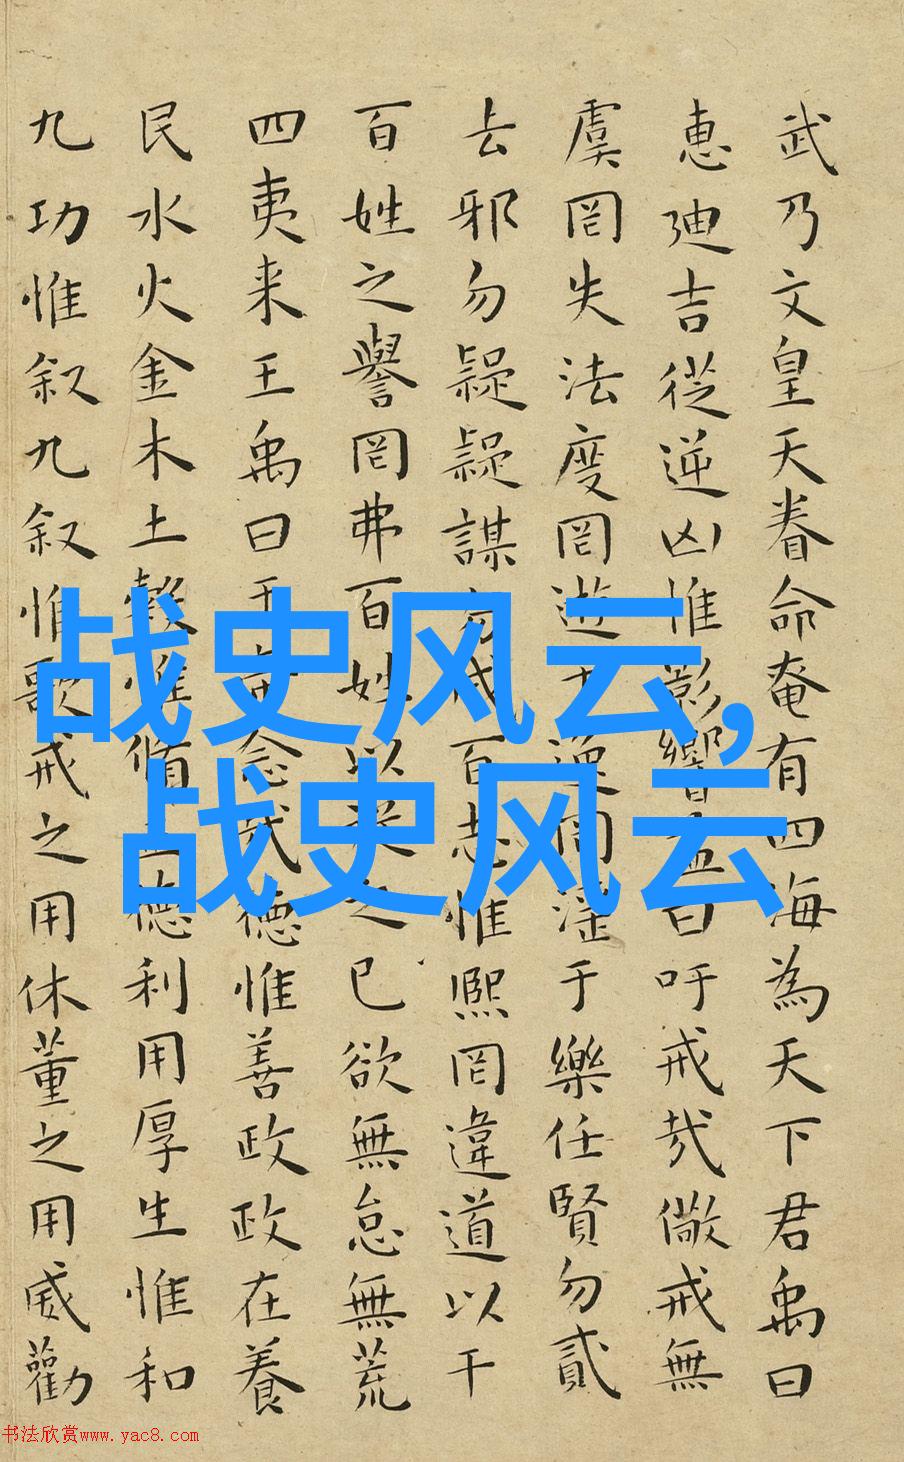 武乃文皇天眷命奄有四海為天下君禹曰
惠迪吉從逆凶惟影響益曰吁戒哉儆戒無
虞罔失法度罔遊于逸罔淫于樂任賢勿貳
去邪勿疑疑謀勿成百志惟熙罔違道以干
百姓之譽罔弗百姓以之已欲無怠無荒
四夷来王禹曰于帝念哉德惟善政政在養
民水火金木土穀惟脩正德利用厚生惟和
九功惟叙九叙惟歌戒之用休董之用威勸
战史风云,
战史风云
书法欣赏www.yac8.com